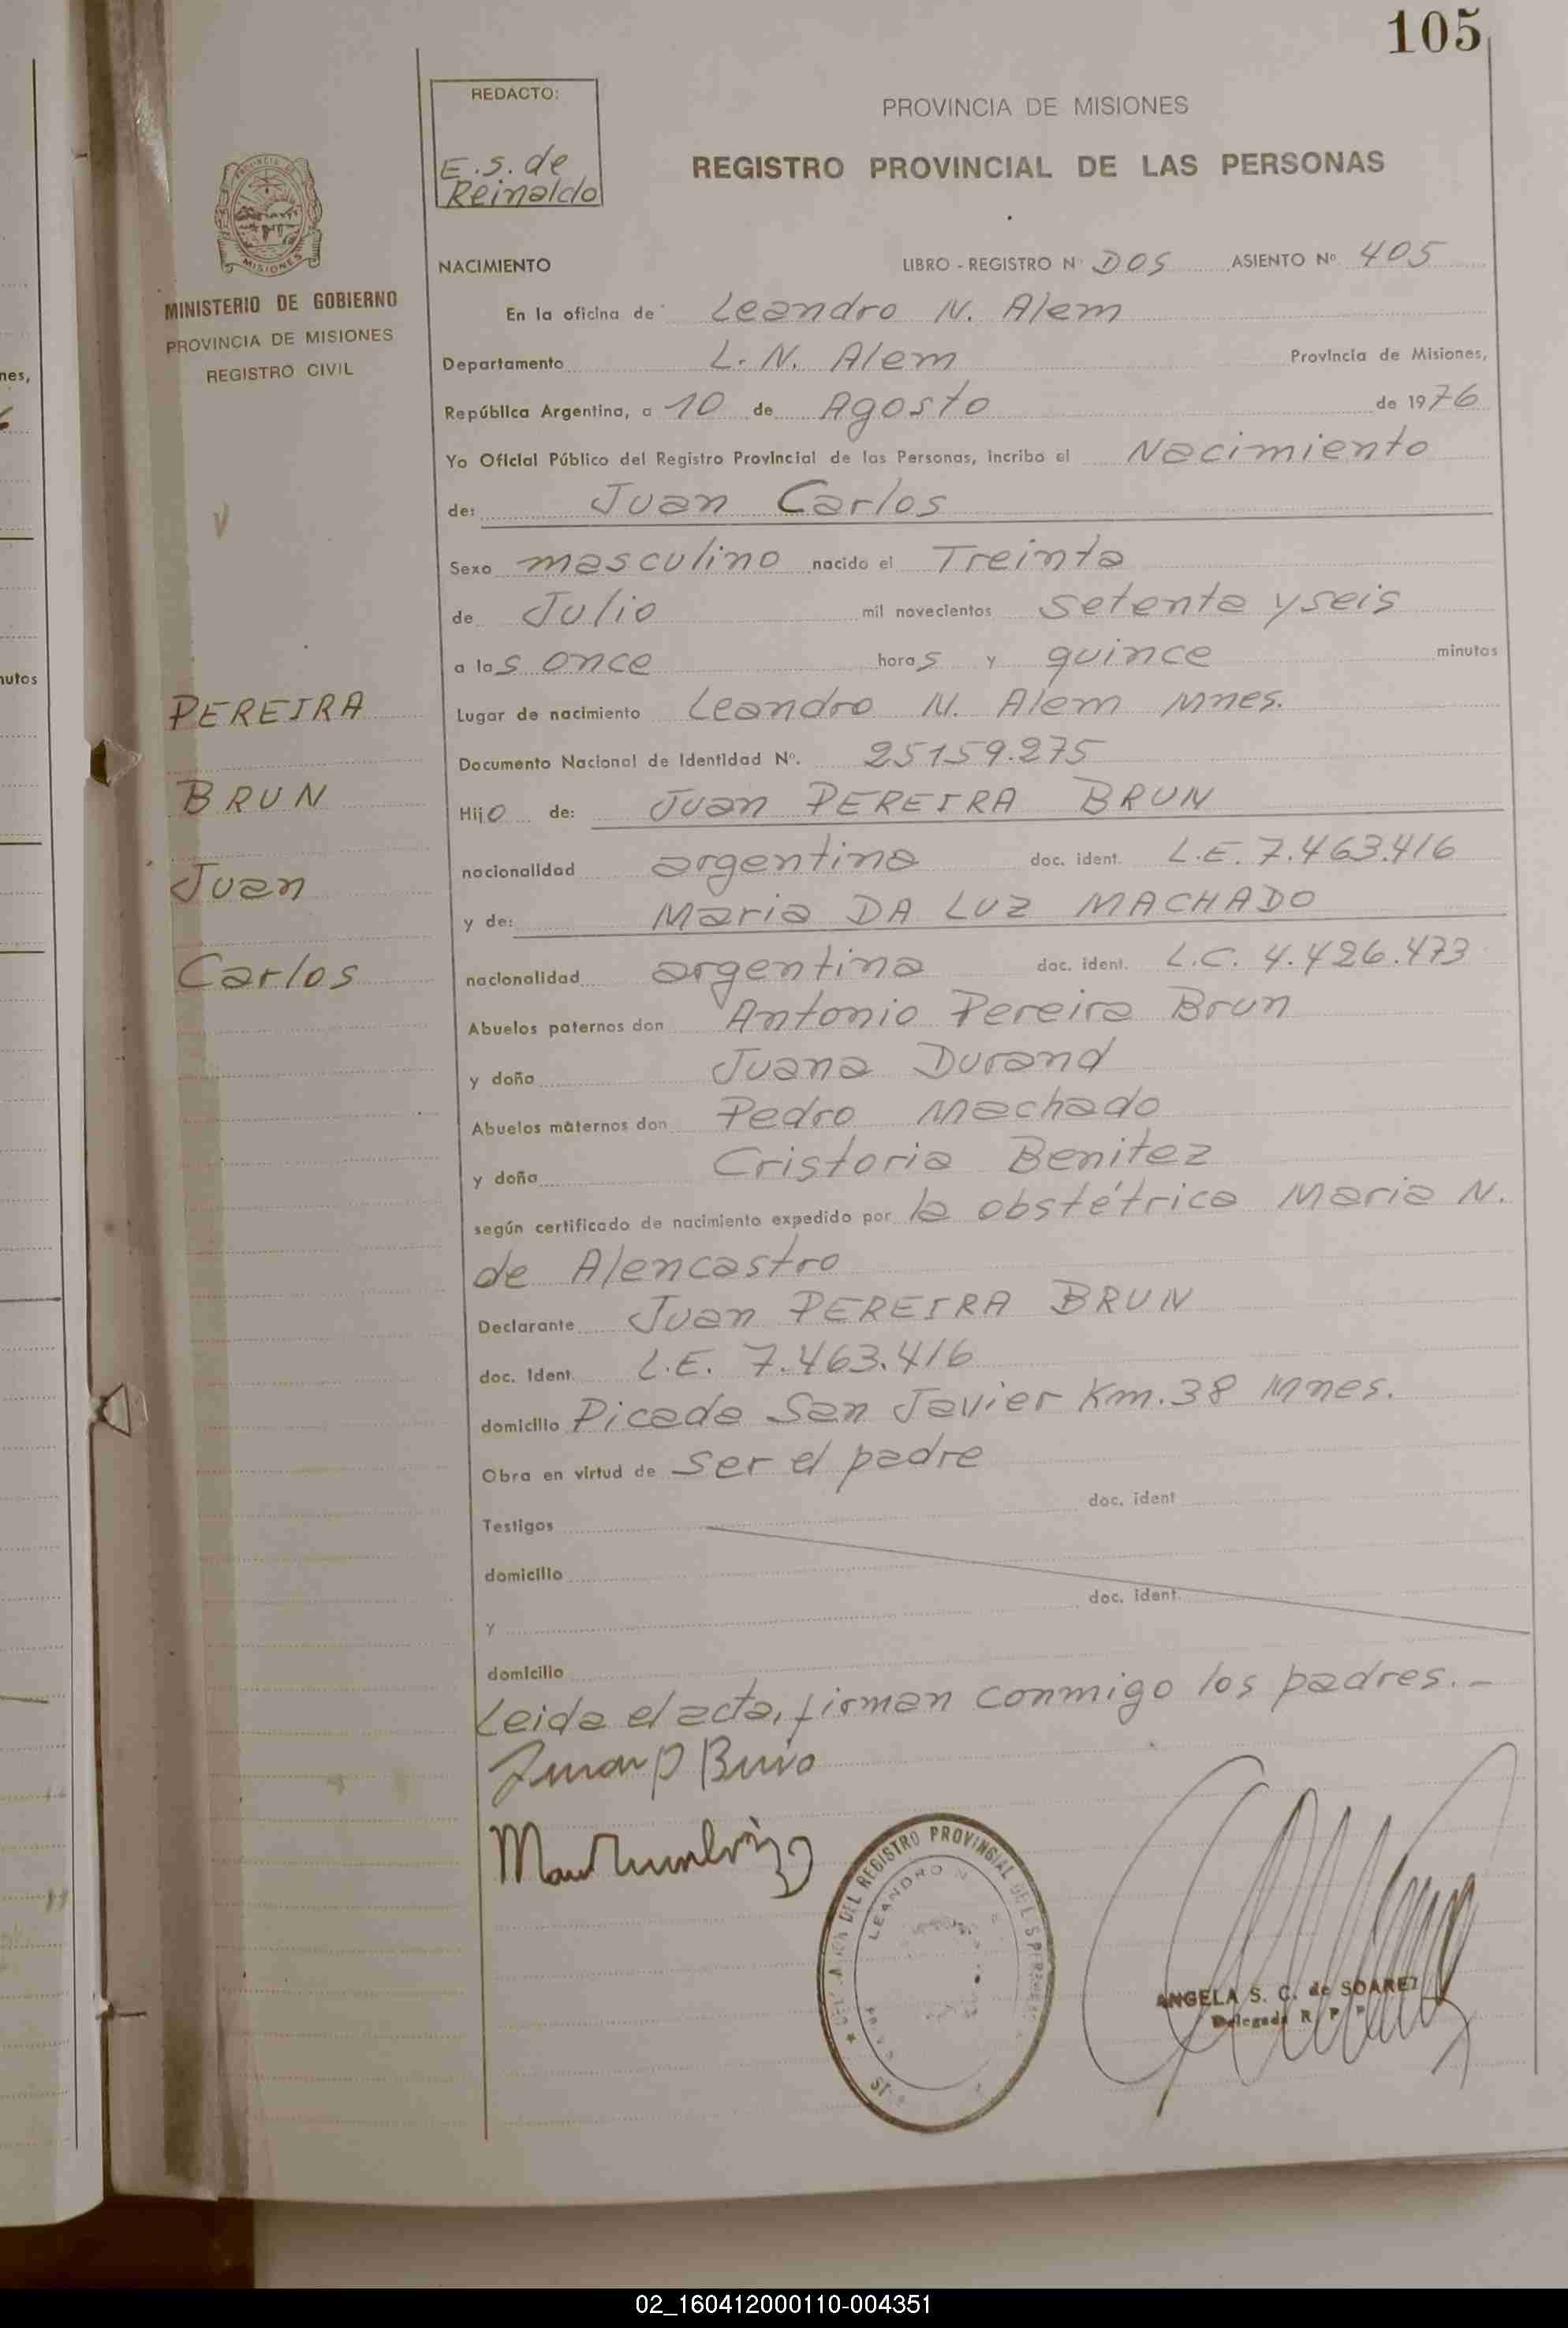 105
REDACTO:
E.S. de
Reinaldo
PROVINCIA DE MISIONES
REGISTRO PROVINCIAL DE LAS PERSONAS
MISIONES
MINISTERIO DE GOBIERNO
PROVINCIA DE MISIONES
REGISTRO CIVIL
NACIMIENTO LIBRO - REGISTRO Nº DOS ASIENTO Nº 405
En la oficina de Leandro N. Alem
Departamento L. N. Alem Provincia de Misiones,
República Argentina, a 10 de Agosto de 1976
Yo Oficial Público del Registro Provincial de las Personas, incribo el Nacimiento
de: Juan Carlos
Sexo masculino nacido el Treinta
de Julio mil novecientos setenta y seis
a las once horas y quince minutos
PEREIRA
Lugar de nacimiento Leandro N. Alem Mnes.
Documento Nacional de Identidad Nº. 25159.275
BRUN
Hijo de: Juan PEREIRA BRUN
nacionalidad argentina doc. ident. L.E. 7.463.416
Juan
y de: Maria DA LUZ MACHADO
Carlos
nacionalidad argentina doc. ident. L.C. 4.426.473
Abuelos paternos don Antonio Pereira Brun
y doña Juana Durand
Abuelos maternos don Pedro Machado
y doña Cristoria Benitez
según certificado de nacimiento expedido por la obstétrica Maria N.
de Alencastro
Declarante Juan PEREIRA BRUN
doc. Ident. L.E. 7.463.416
domicilio Picada San Javier Km. 38 Mnes.
Obra en virtud de ser el padre
doc. ident
Testigos
domicilio
doc. ident.
y
domicilio
Leida el acta, firman conmigo los padres.-
Juan P
DEL REGISTRO PROVINCIAL DE
LEANDRO N
ANGELA S. C. de SOAREZ
Delegada R. P. P.
nes,
nutos
02_160412000110-004351